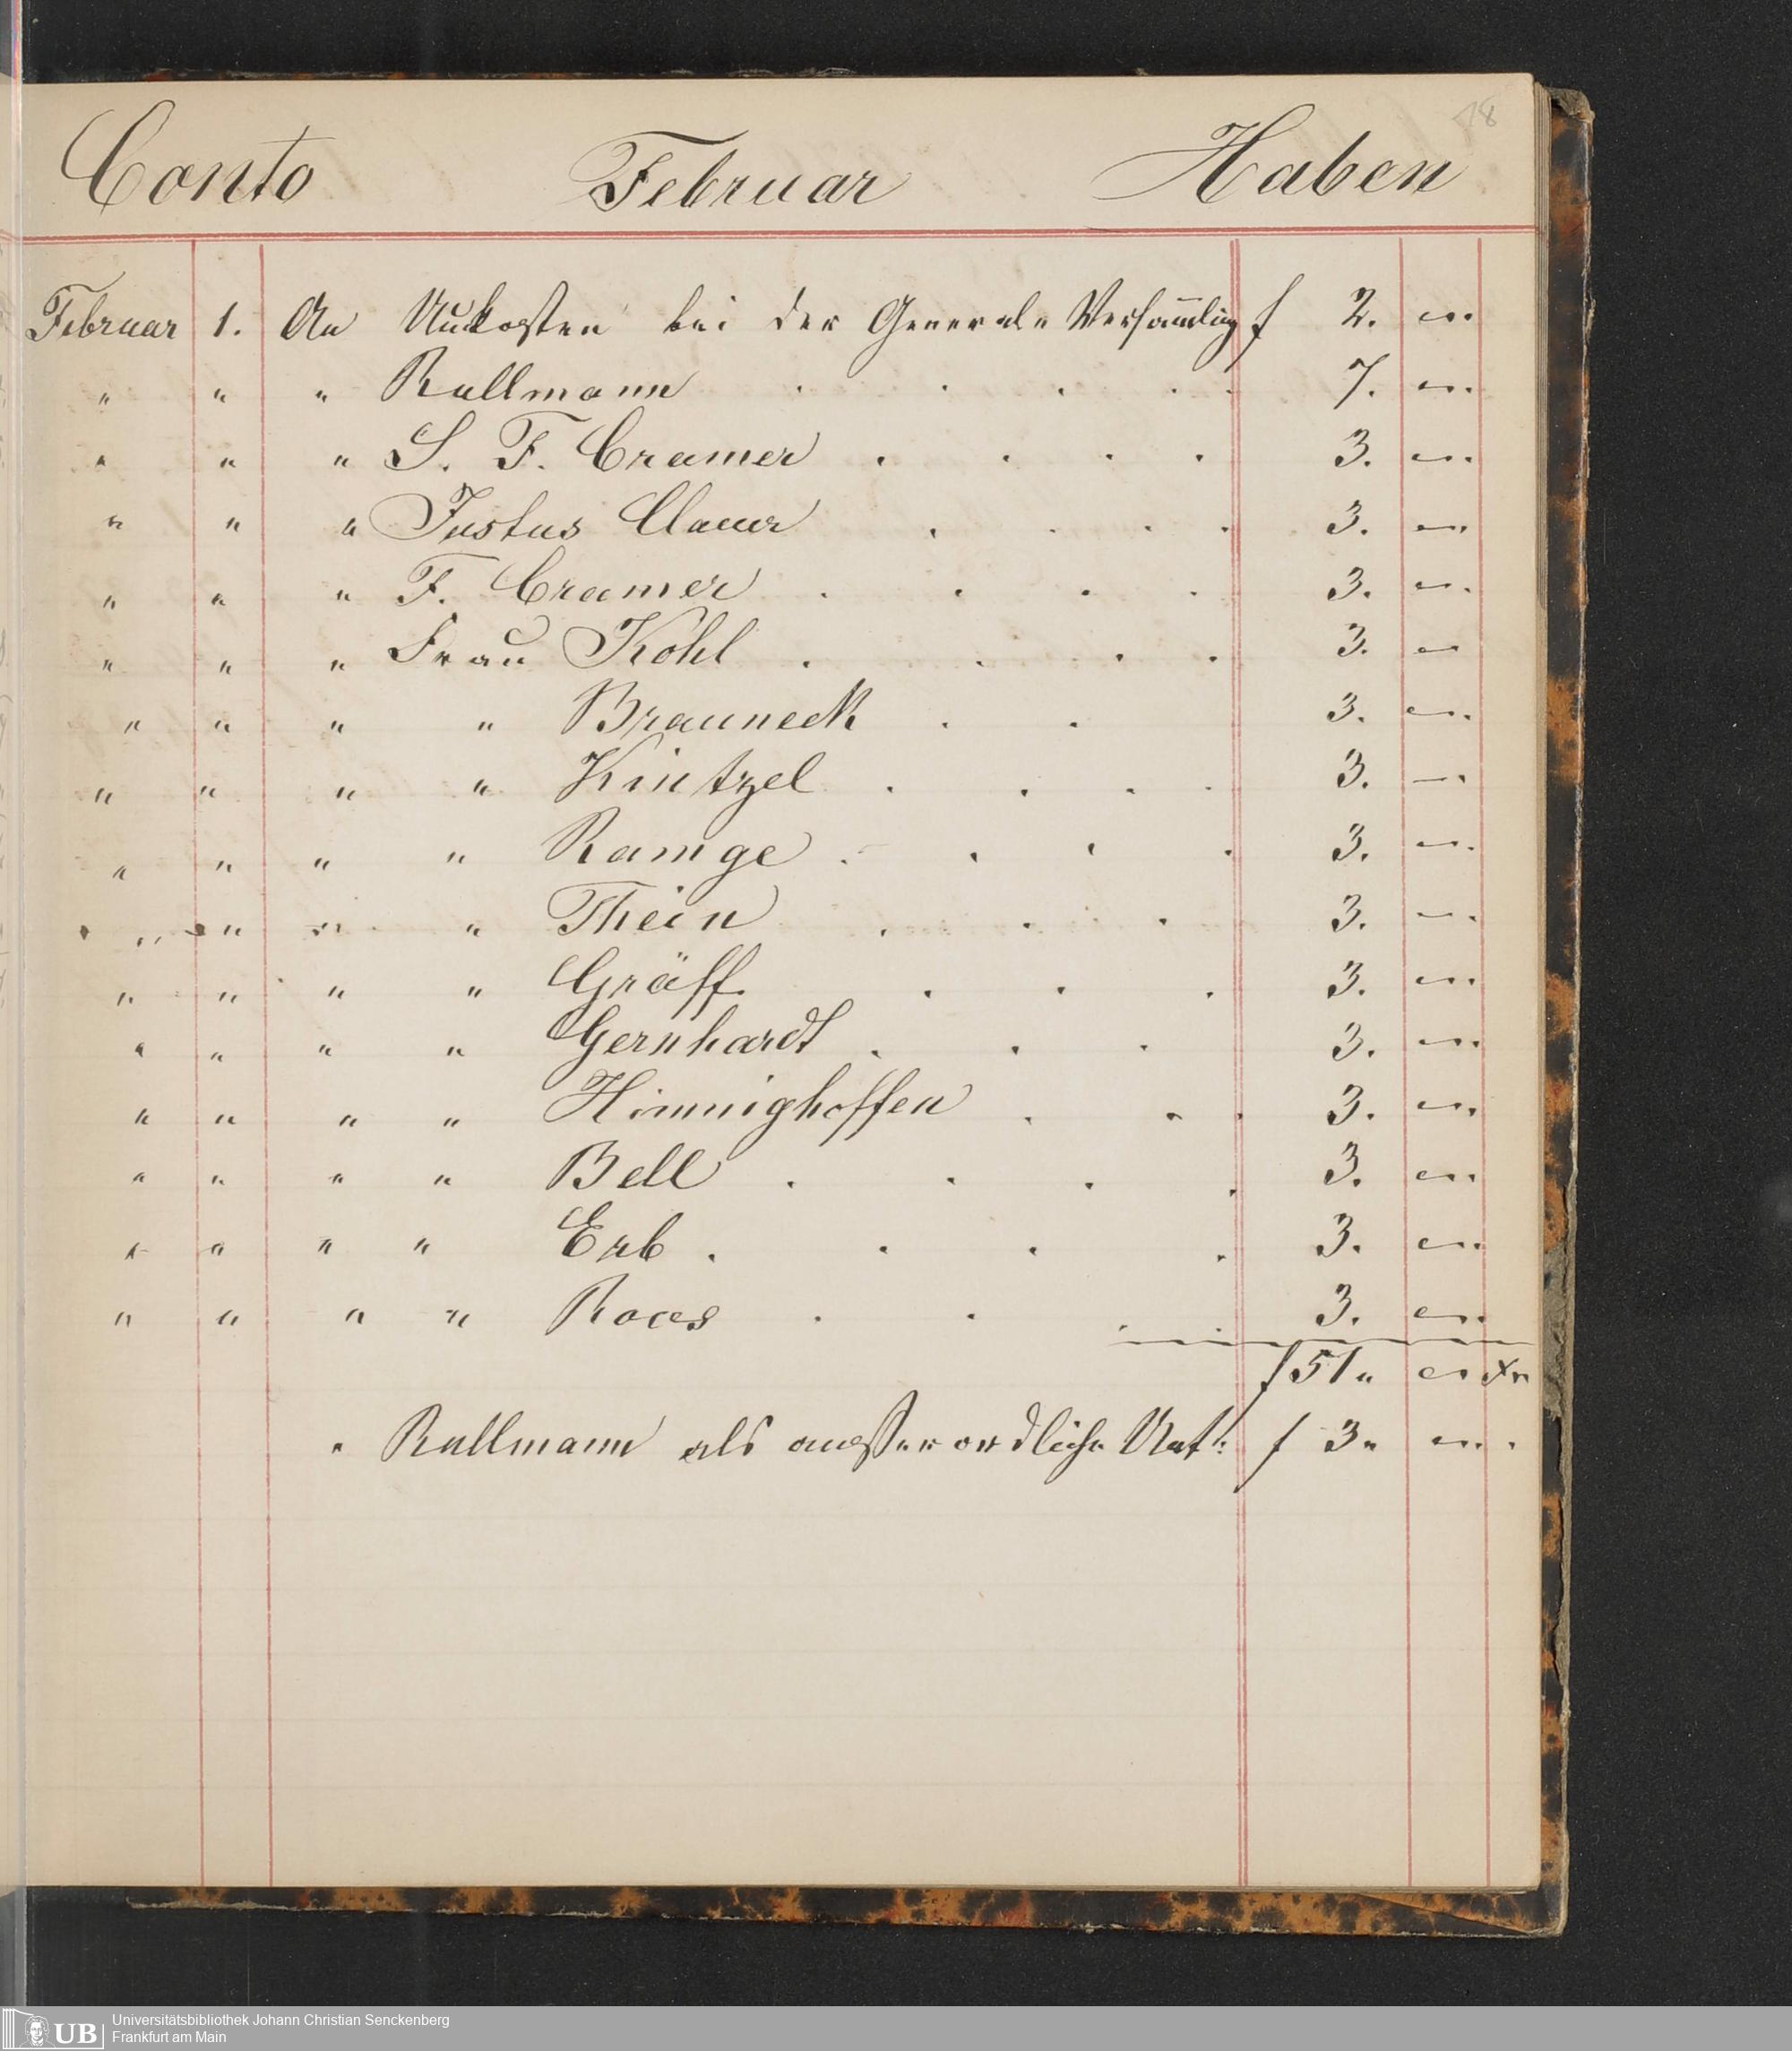 18
Conto Februar Haben
Februar 1. An Unkosten bei der Generale Versam̄lung f 2. —.
" " " Rullmann . . . . . 7. —.
" " " S. F. Cramer . . . . 3. —.
" " " Justus Clauer . . . . 3. —.
" " " F. Cramer . . . . 3. —.
" " " Frau Kohl . . . . 3. —
" " " " Brauneck . . 3. —.
" " " " Kintzel . . . . 3. —.
" " " " Ramge . . . . 3. —.
" " " " Thein . . . 3. —.
" " " " Gräff . . . 3. —.
" " " " Gernhardt . . . 3. —.
" " " " Himmighoffen . . . 3. —.
" " " " Bell . . . . 3. —.
" " " " Erb . . . . 3. —.
" " " " Roos . . . . 3. —.
f 51 " — xr
" Rullmann als ausserordliche Unt: f 3 " —.
UB
Universitätsbibliothek Johann Christian Senckenberg
Frankfurt am Main